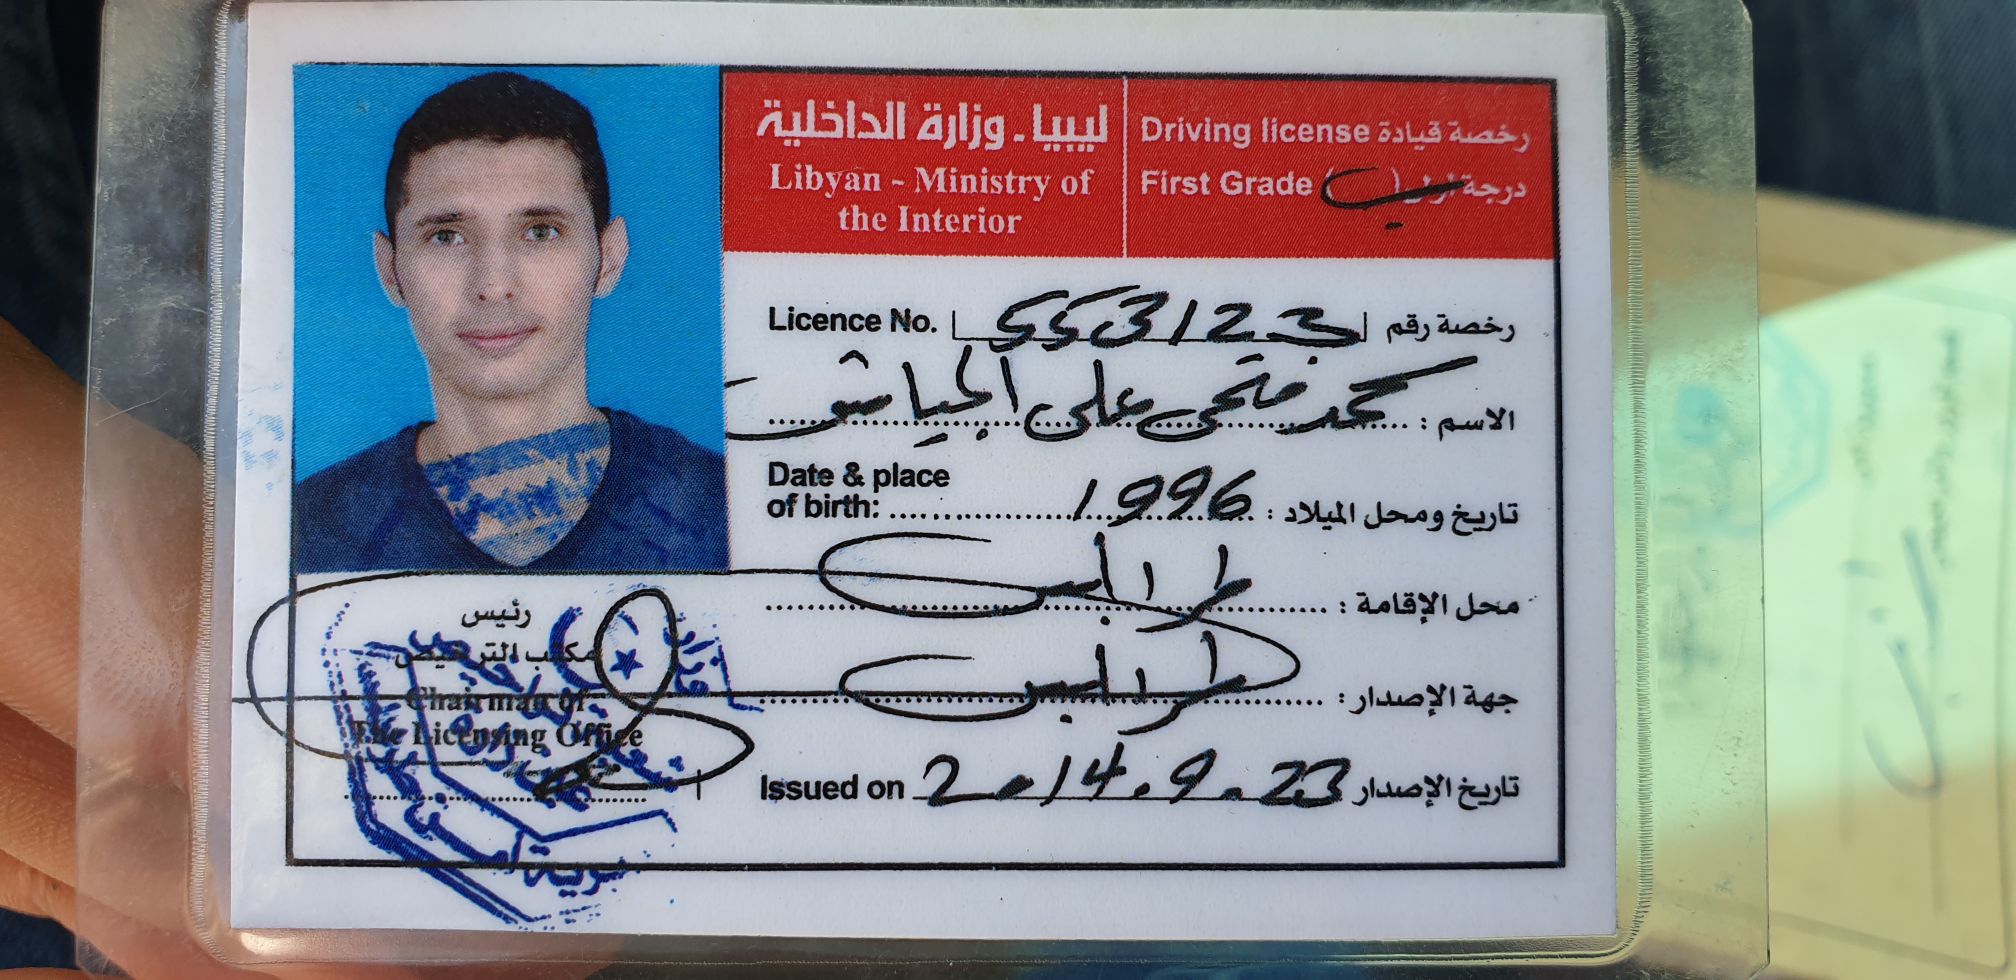 ليبيا - وزارة الداخلية
Libyan - Ministry of
the Interior
Driving license رخصة قيادة
First Grade درجة أولى ( ب )
Licence No. 553123 رخصة رقم
الاسم : محمد فتحي علي الجياش
Date & place
of birth: 1996 تاريخ ومحل الميلاد :
محل الإقامة : طرابلس
جهة الإصدار : طرابلس
Issued on 2014.9.23 تاريخ الإصدار
رئيس
مكتب التراخيص
Chairman of
The Licensing Office